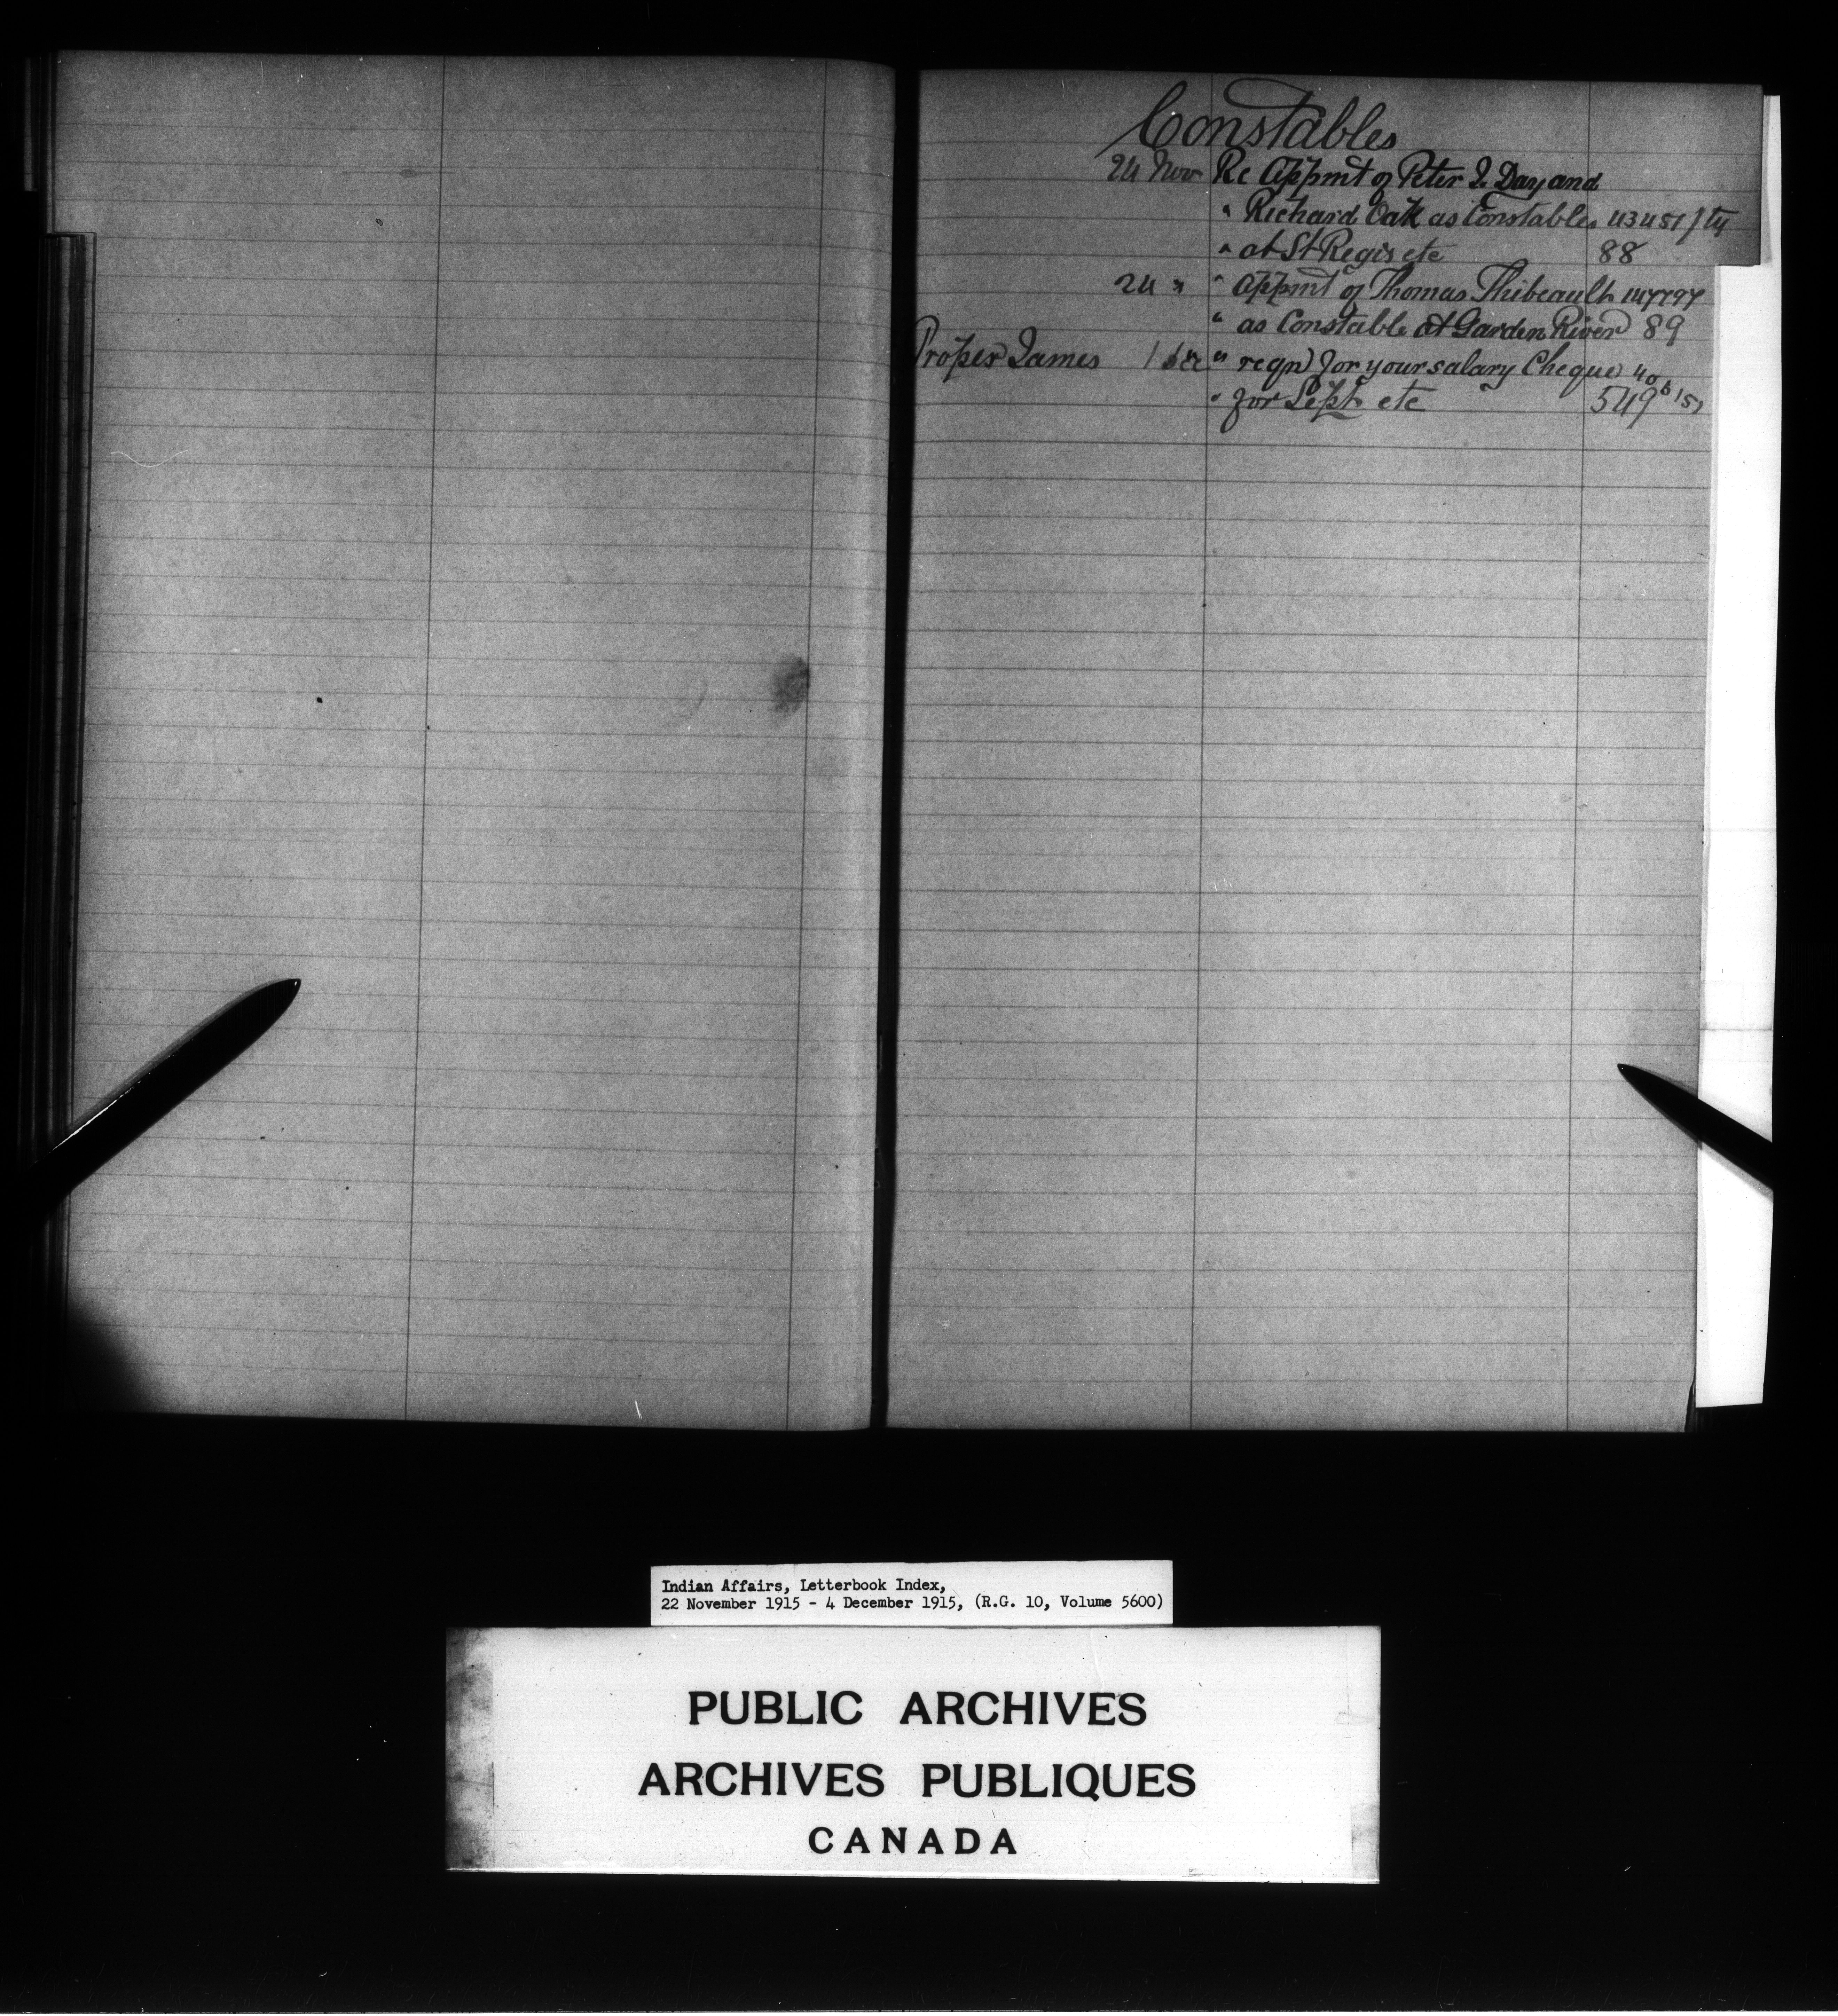 Constables
24 Nov Re Appmt of Peter J. Day and
" Richard Oak as Constables 43451
" at St Regis etc 88
24 " " Appmt of Thomas Thibeault 147797
" as Constable at Garden River 89
Proper James 1 Dec " reqn for your salary Cheque 40
" for Sept etc 549
Indian Affairs, Letterbook Index,
22 November 1915 - 4 December 1915, (R.G. 10, Volume 5600)
PUBLIC ARCHIVES
ARCHIVES PUBLIQUES
CANADA